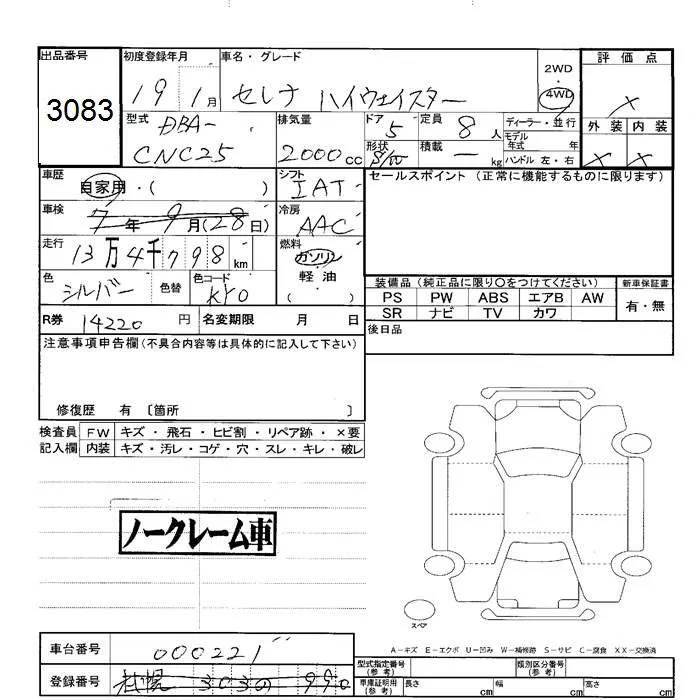 出品番号 初度登録年月 車名・グレード 2WD 評価点
3083 19 1月 セレナ ハイウェイスター 4WD ×
型式 DBA- 排気量 ドア 5 定員 8人 ディーラー・並行 外装 内装
CNC25 2000cc 形状 S/W 積載 ー kg モデル年式 年 × ×
ハンドル 左・右
車歴 自家用・( ) シフト IAT セールスポイント (正常に機能するものに限ります)
車検 7年9月(28日) 冷房 AAC
走行 13万4千798km 燃料 ガソリン
色 シルバー 色替 色コード KY0 軽油 ( )
装備品 (純正品に限り○をつけてください) 新車保証書
PS PW ABS エアB AW 有・無
SR ナビ TV カワ
R券 14220円 名変期限 月 日 後日品
注意事項申告欄(不具合内容等は具体的に記入して下さい)
修復歴 有 〔箇所 〕
検査員 FW キズ・飛石・ヒビ割・リペア跡・×要
記入欄 内装 キズ・汚レ・コゲ・穴・スレ・キレ・破レ
ノークレーム車
スペア
A-キズ E-エクボ U-凹み W-補修跡 S-サビ C-腐食 XX-交換済
車台番号 000221
型式指定番号(参考) 類別区分番号(参考)
登録番号 札幌 303の990
車庫証明用(参考) 長さ cm 幅 cm 高さ cm